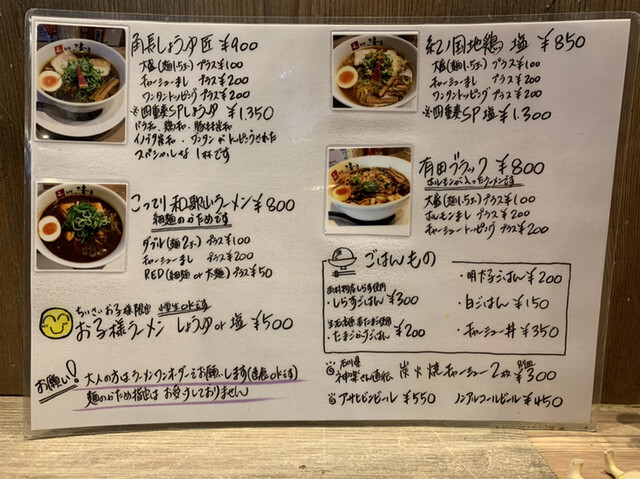 角長しょうゆ匠 ¥900
大盛(麺1.5玉) プラス¥100
チャーシューまし プラス¥200
ワンタントッピング プラス¥200
※四重奏SPしょうゆ ¥1.350
バラチャー、鶏チャー、豚チャー
イノブタチャー、ワンタンがトッピングされた
スペシャルな1杯です
こってり和歌山ラーメン ¥800
細麺のかためです
ダブル(麺2玉) プラス¥100
チャーシューまし プラス¥200
RED(細麺or太麺) プラス¥50
ちいさいお子様限定 小学生okです
お子様ラーメン しょうゆor塩 ¥500
お願い! 大人の方はラーメンワンオーダーをお願いします(連食okです)
麺のかため指定はお受けしておりません
紀ノ国地鶏 塩 ¥850
大盛(麺1.5玉) プラス¥100
チャーシューまし プラス¥200
ワンタントッピング プラス¥200
※四重奏SP塩 ¥1.300
有田ブラック ¥800
ホルモンが入ったラーメンです
大盛(麺1.5玉) プラス¥100
ホルモンまし プラス¥200
チャーシュートッピング プラス¥200
ごはんもの
しらす使用
・しらすごはん ¥300
たまご使用
・たまごかけごはん ¥200
・明太子ごはん ¥200
・白ごはん ¥150
・チャーシュー丼 ¥350
石川県
神楽さん直伝 炭火焼チャーシュー2枚 別皿 ¥300
アサヒビンビール ¥550 ノンアルコールビール ¥450